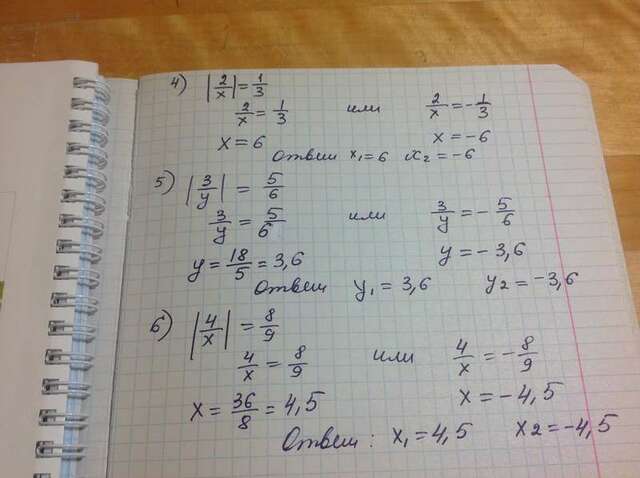 4) |2/x| = 1/3
2/x = 1/3 или 2/x = -1/3
x = 6 x = -6
Ответ x₁ = 6 x₂ = -6
5) |3/y| = 5/6
3/y = 5/6 или 3/y = -5/6
y = 18/5 = 3,6 y = -3,6
Ответ y₁ = 3,6 y₂ = -3,6
6) |4/x| = 8/9
4/x = 8/9 или 4/x = -8/9
x = 36/8 = 4,5 x = -4,5
Ответ: x₁ = 4,5 x₂ = -4,5